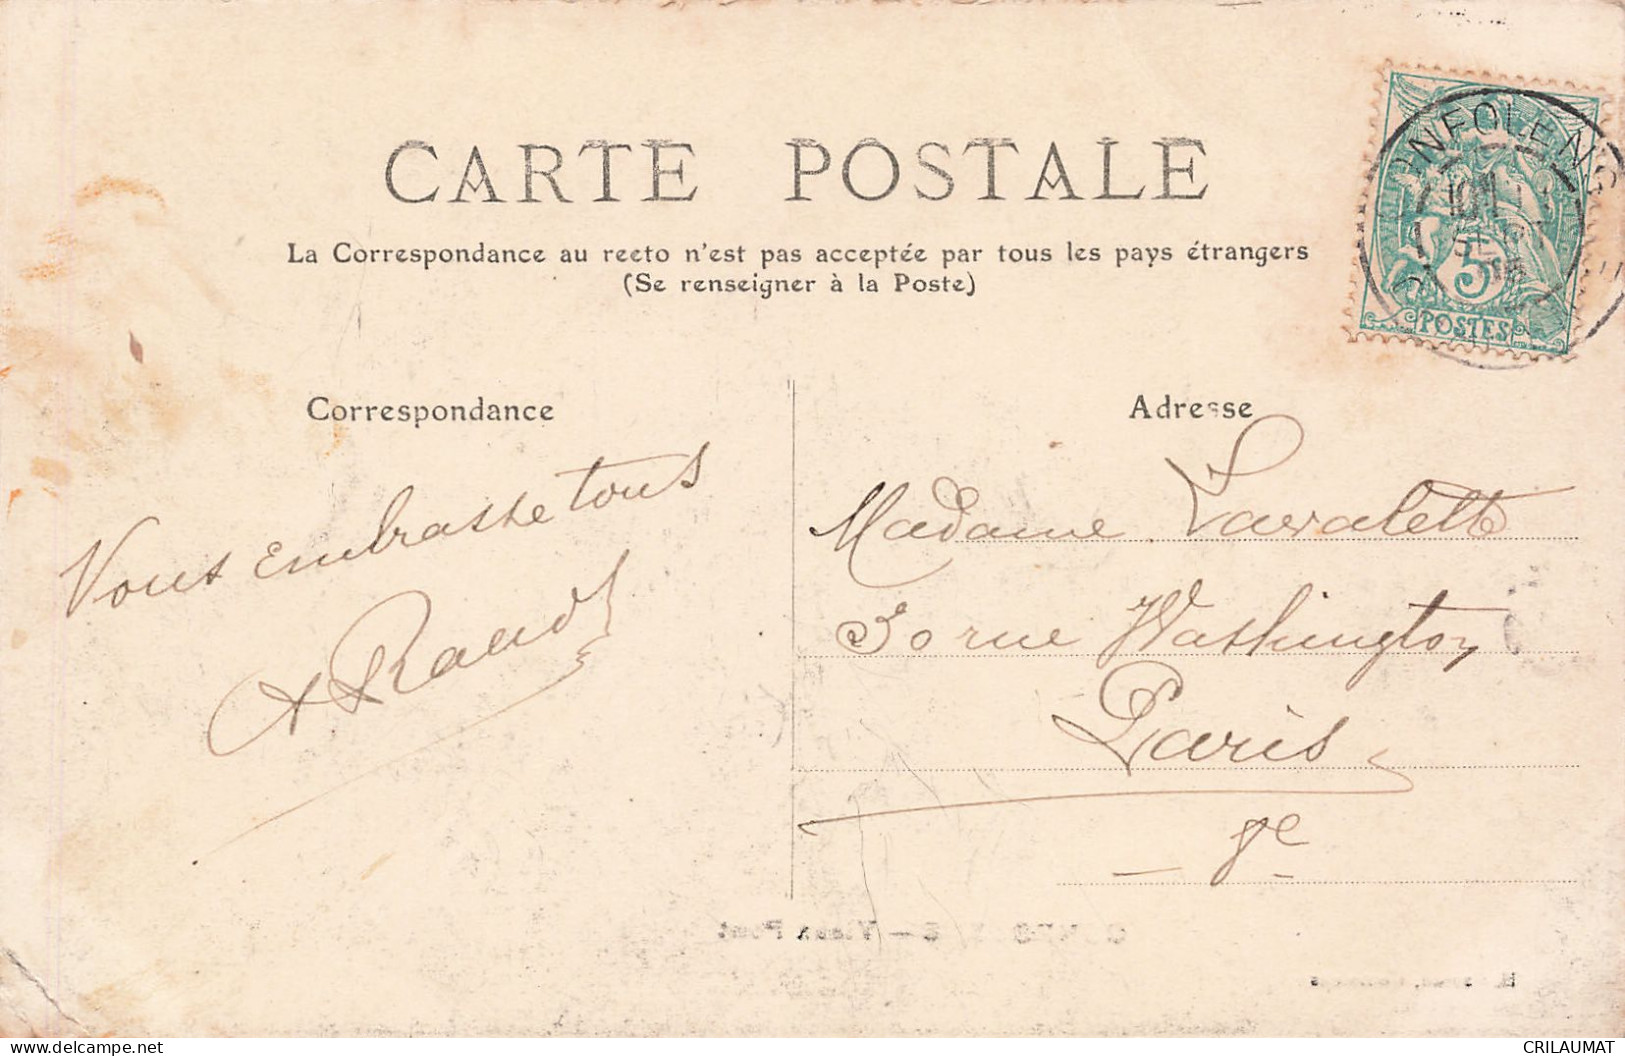 CARTE POSTALE
La Correspondance au recto n'est pas acceptée par tous les pays étrangers
(Se renseigner à la Poste)
CONFOLENS
5
POSTES
Correspondance
Vous embrasse tous
Adresse
Madame Lavalette
30 rue Washington
Paris
8e
CONFOLENS — Vieux Pont
www.delcampe.net
CRILAUMAT